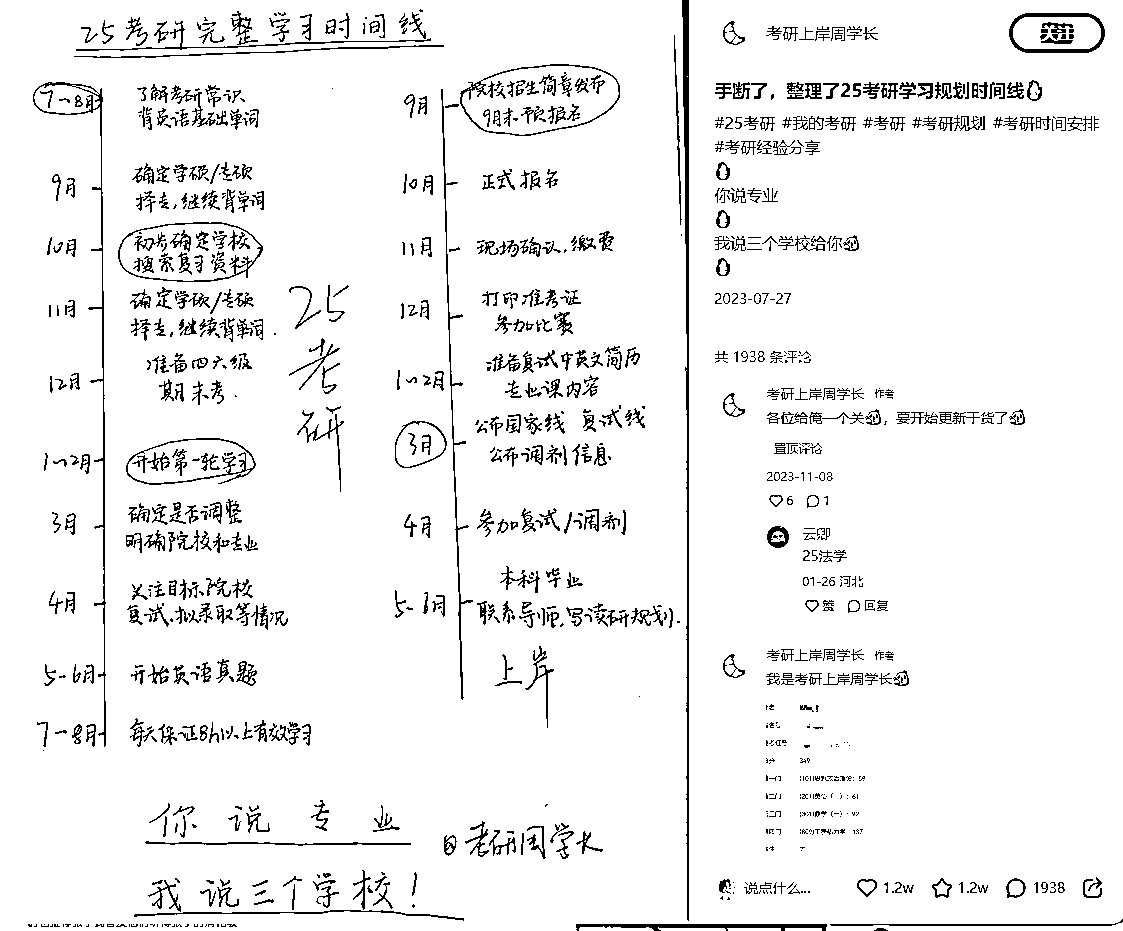 25考研完整学习时间线
7~8月
了解考研常识
背英语基础单词
9月
确定学硕/专硕
择专,继续背单词
10月
初步确定学校
搜索复习资料
11月
确定学硕/专硕
择专,继续背单词.
12月
准备四六级
期末考.
1~2月
开始第一轮学习
3月
确定是否调整
明确院校和专业
4月
关注目标院校
复试.拟录取等情况
5-6月
开始英语真题
7-8月
每天保证8h以上有效学习
25
考
研
9月
院校招生简章发布
9月末预报名
10月
正式报名
11月
现场确认,缴费
12月
打印准考证
参加比赛
1~2月
准备复试中英文简历
专业课内容
3月
公布国家线 复试线
公布调剂信息
4月
参加复试/调剂
5-6月
本科毕业
联系导师,写读研规划.
上岸
你说专业
@考研周学长
我说三个学校!
考研上岸周学长
关注
手断了，整理了25考研学习规划时间线
#25考研 #我的考研 #考研 #考研规划 #考研时间安排
#考研经验分享
你说专业
我说三个学校给你
2023-07-27
共 1938 条评论
考研上岸周学长 作者
各位给俺一个关，要开始更新干货了
置顶评论
2023-11-08
6 1
云卿
25法学
01-26 河北
赞 回复
考研上岸周学长 作者
我是考研上岸周学长
349
说点什么... 1.2w 1.2w 1938